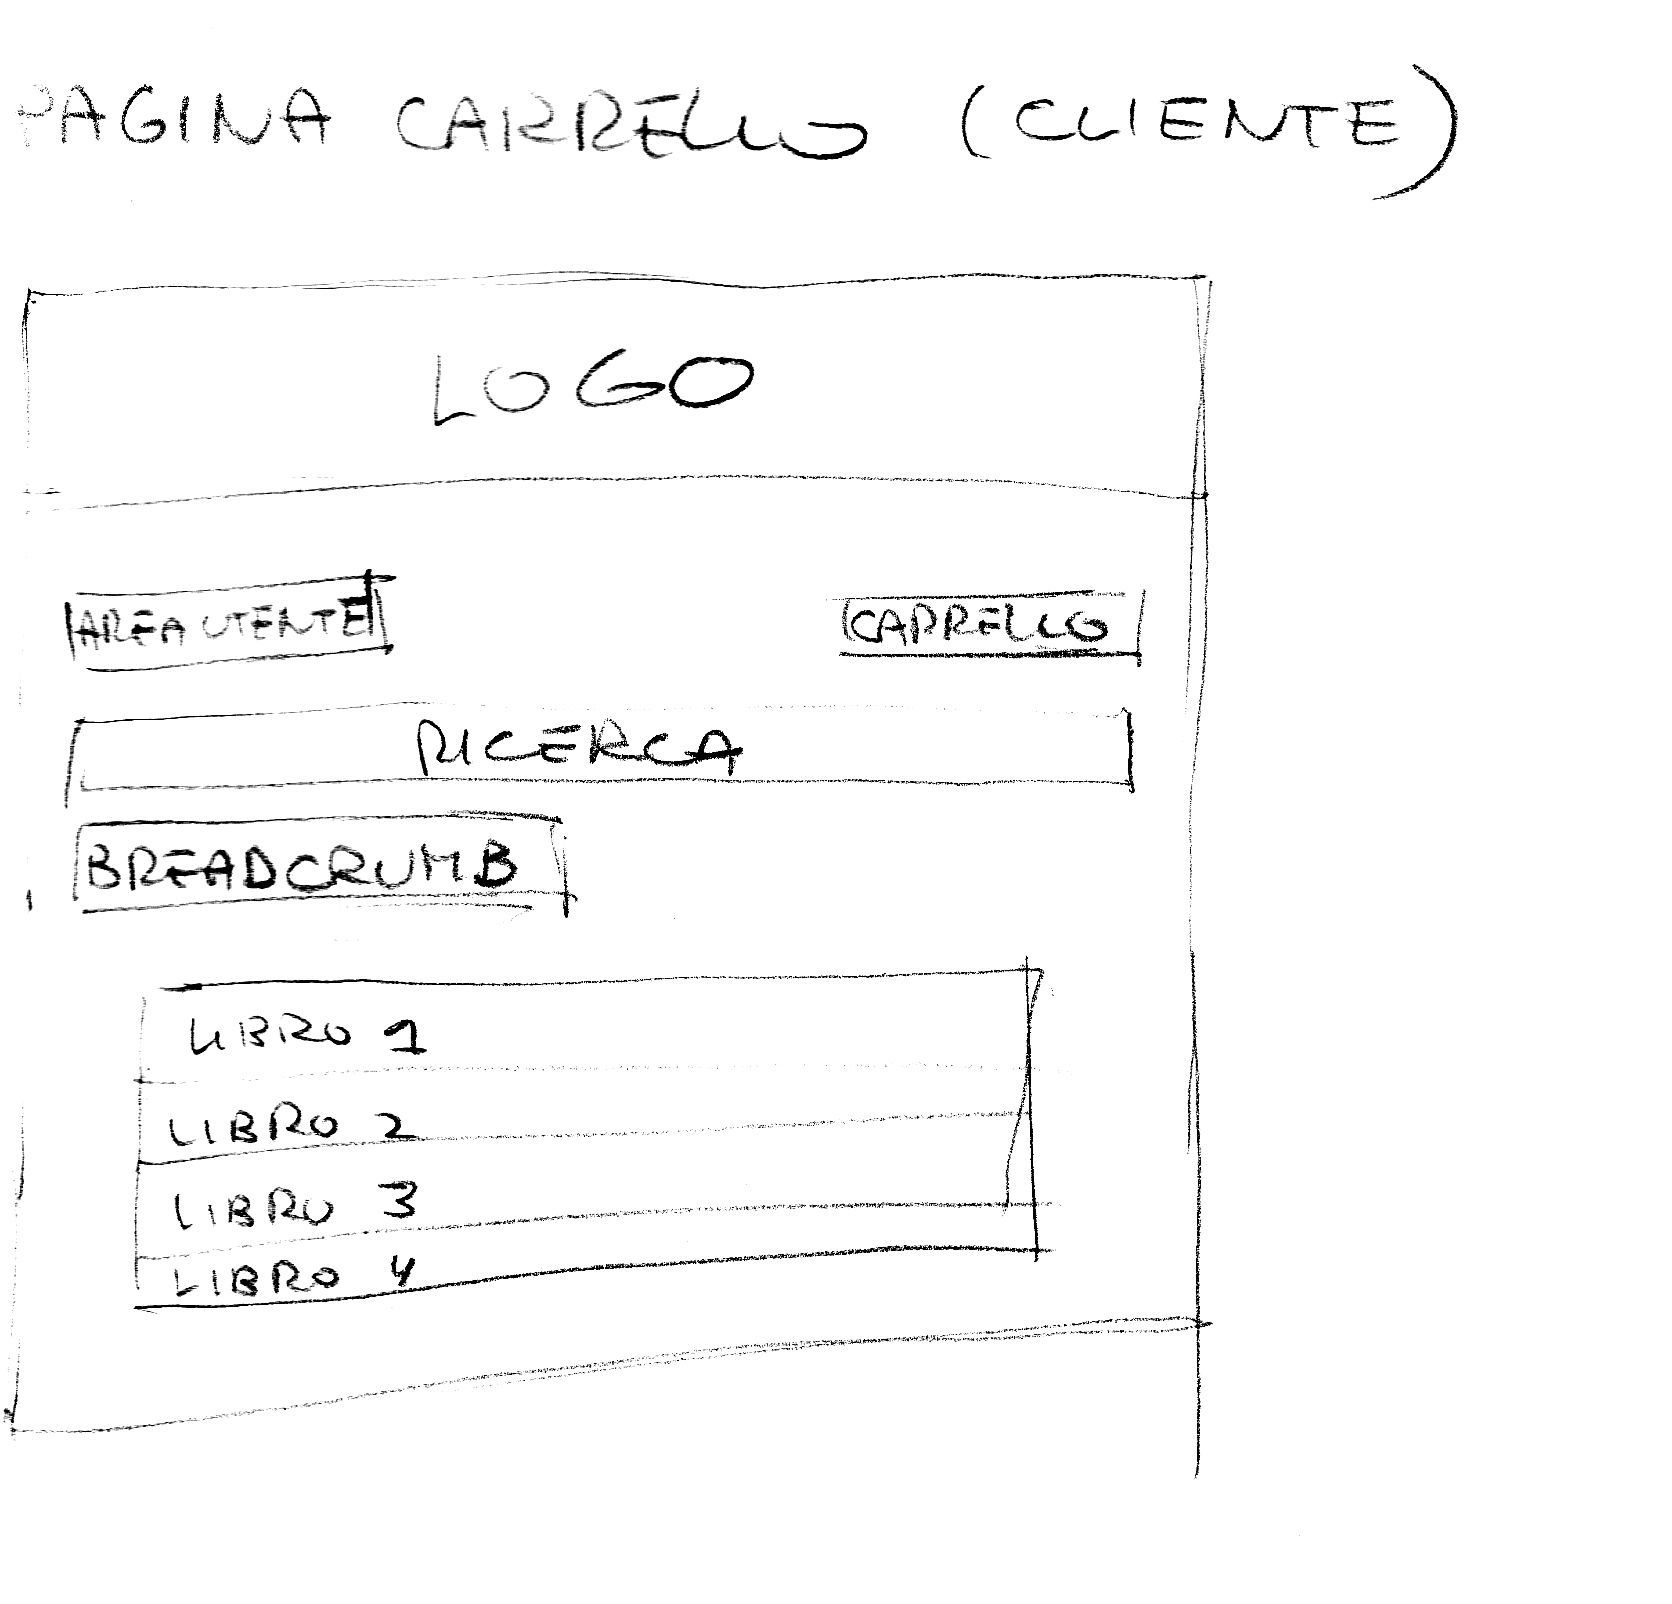 PAGINA CARRELLO (CLIENTE)
LOGO
AREA UTENTE
CARRELLO
RICERCA
BREADCRUMB
LIBRO 1
LIBRO 2
LIBRO 3
LIBRO 4